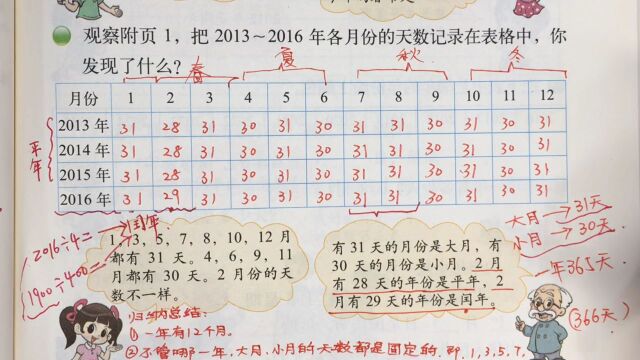 观察附页 1，把 2013～2016 年各月份的天数记录在表格中，你
发现了什么？
春 夏 秋 冬
月份 1 2 3 4 5 6 7 8 9 10 11 12
平年
2013 年 31 28 31 30 31 30 31 31 30 31 30 31
2014 年 31 28 31 30 31 30 31 31 30 31 30 31
2015 年 31 28 31 30 31 30 31 31 30 31 30 31
2016 年 31 29 31 30 31 30 31 31 30 31 30 31
2016÷4= →闰年
1900÷400=
1，3，5，7，8，10，12 月
都有 31 天。4，6，9，11
月都有 30 天。2 月份的天
数不一样。
有 31 天的月份是大月，有
30 天的月份是小月。2 月
有 28 天的年份是平年，2
月有 29 天的年份是闰年。
大月→31天
小月→30天
一年365天
(366天)
归纳总结：
①一年有12个月。
②不管哪一年，大月、小月的天数都是固定的。即 1，3，5，7，